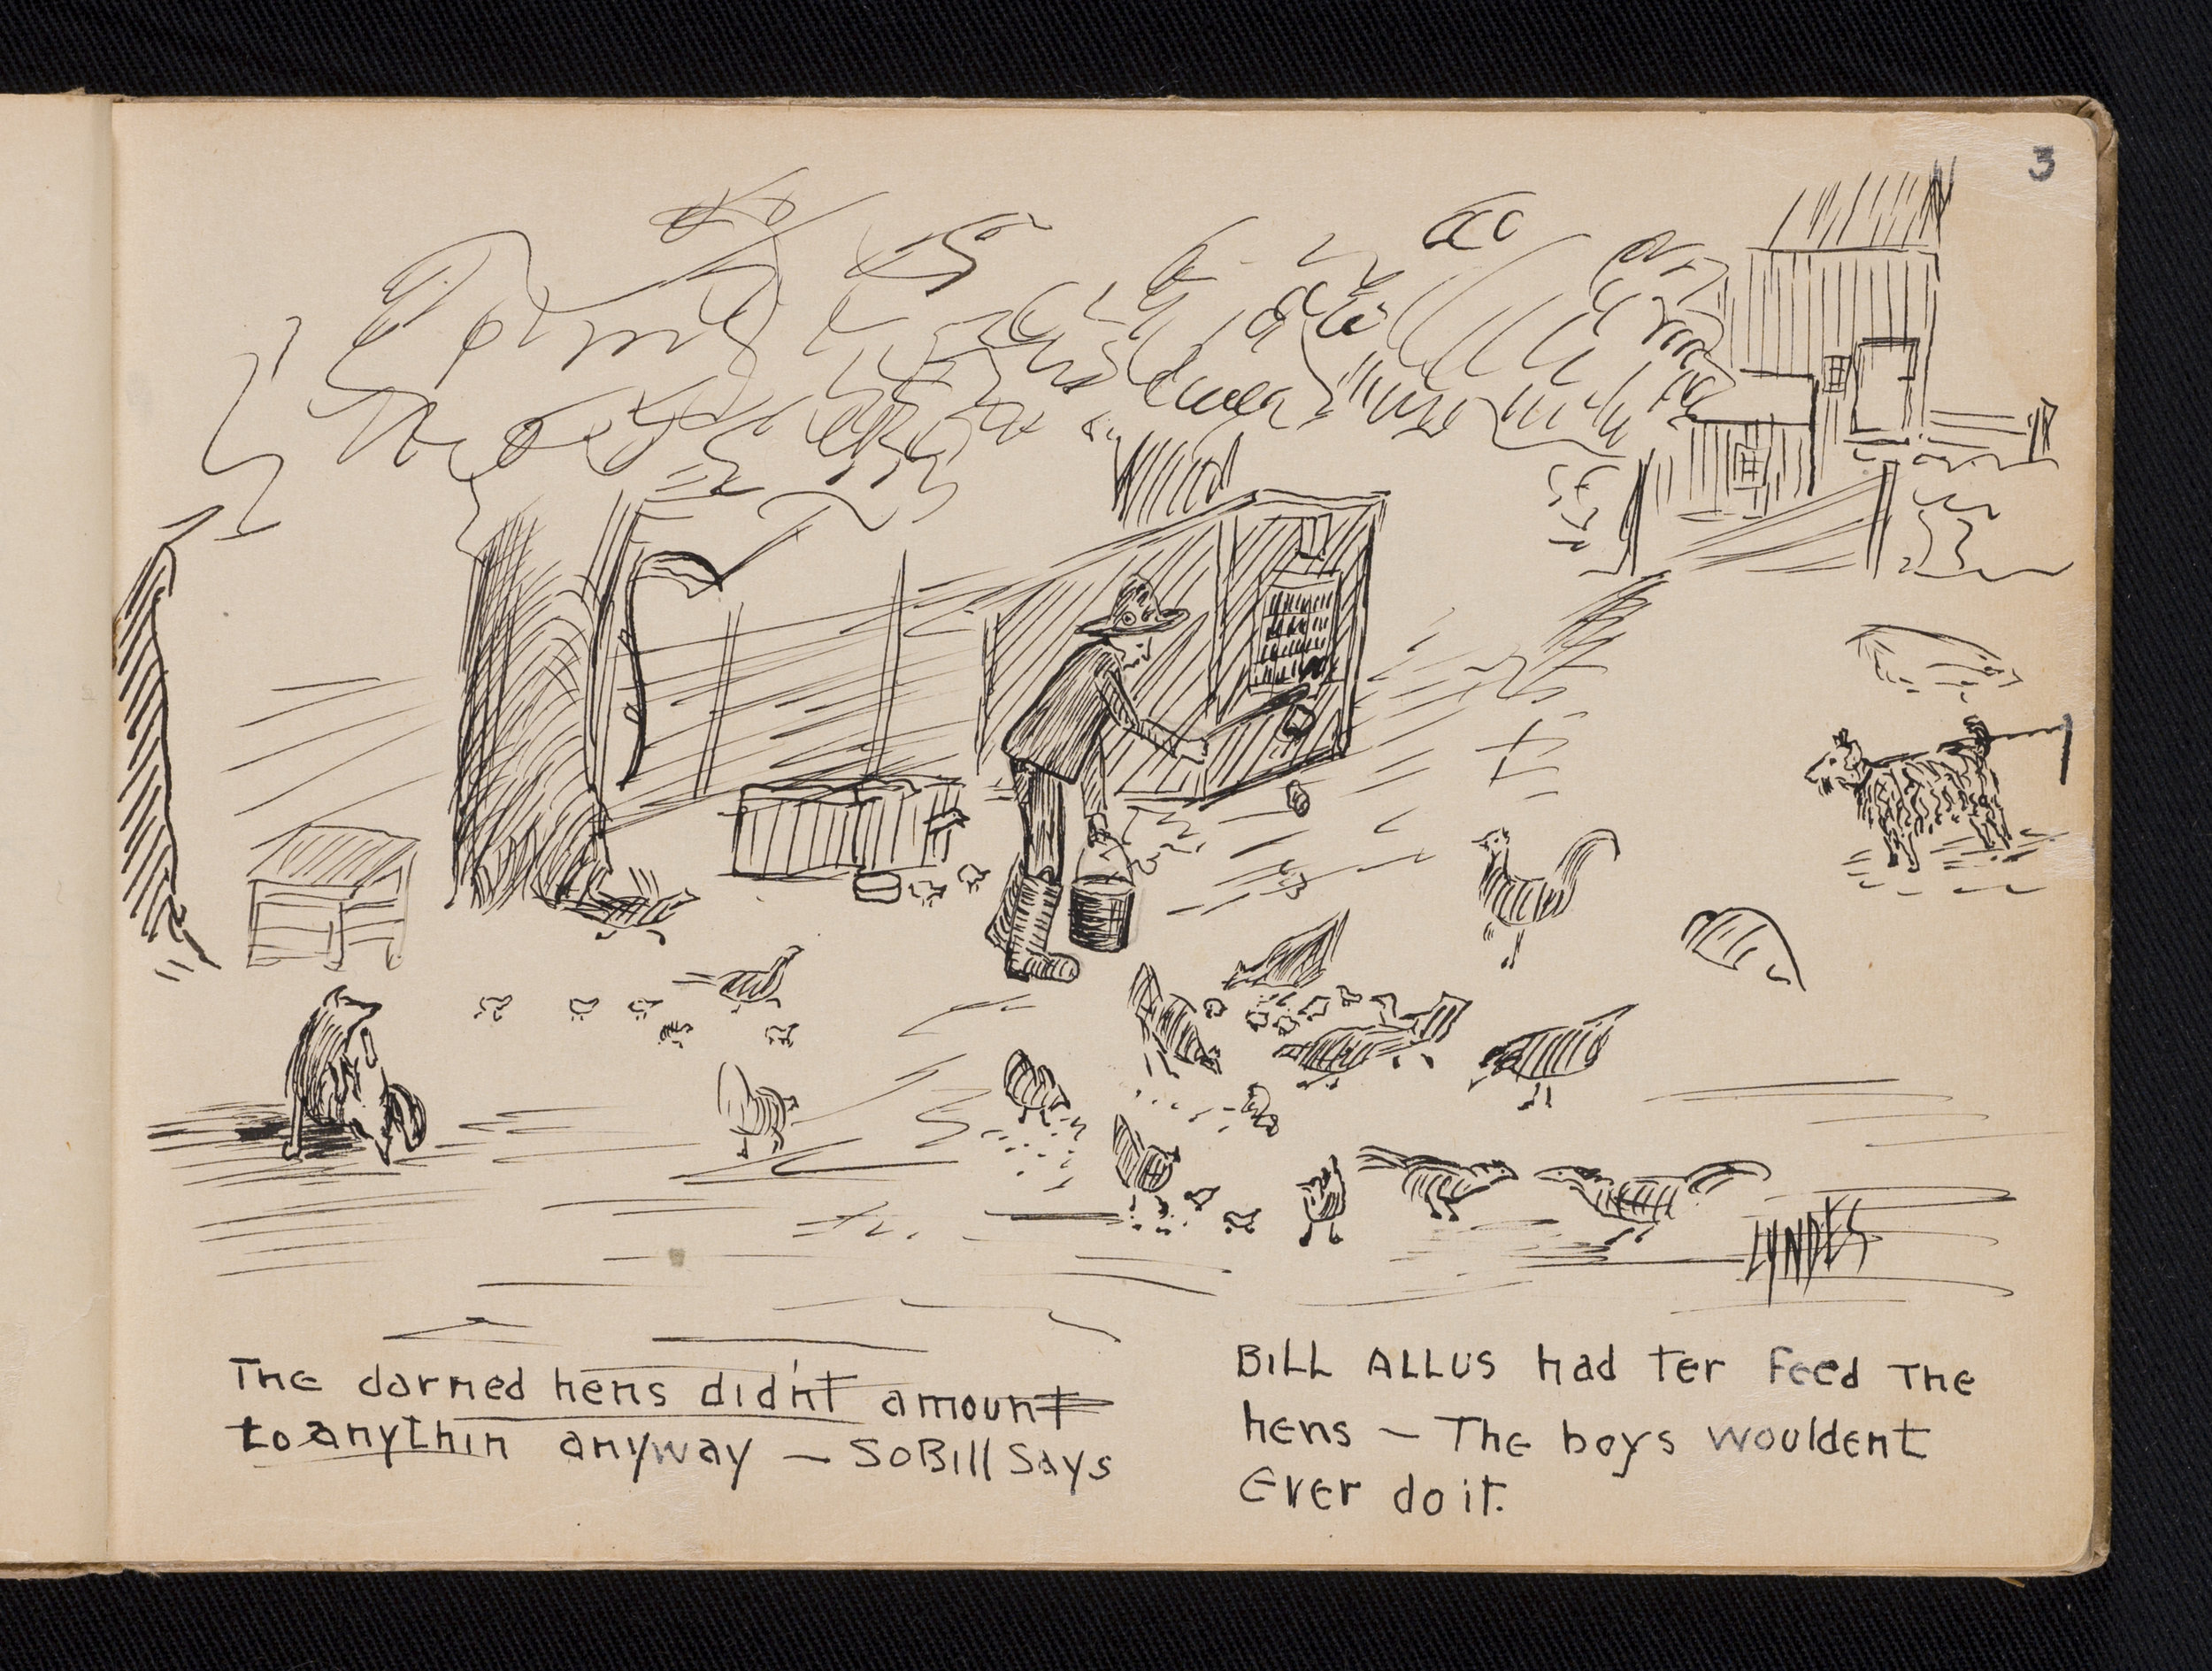 3
LYNDES
The darned hens didn't amount
to anythin anyway — So Bill Says
BILL ALLUS had ter feed The
hens — The boys wouldent
Ever do it.